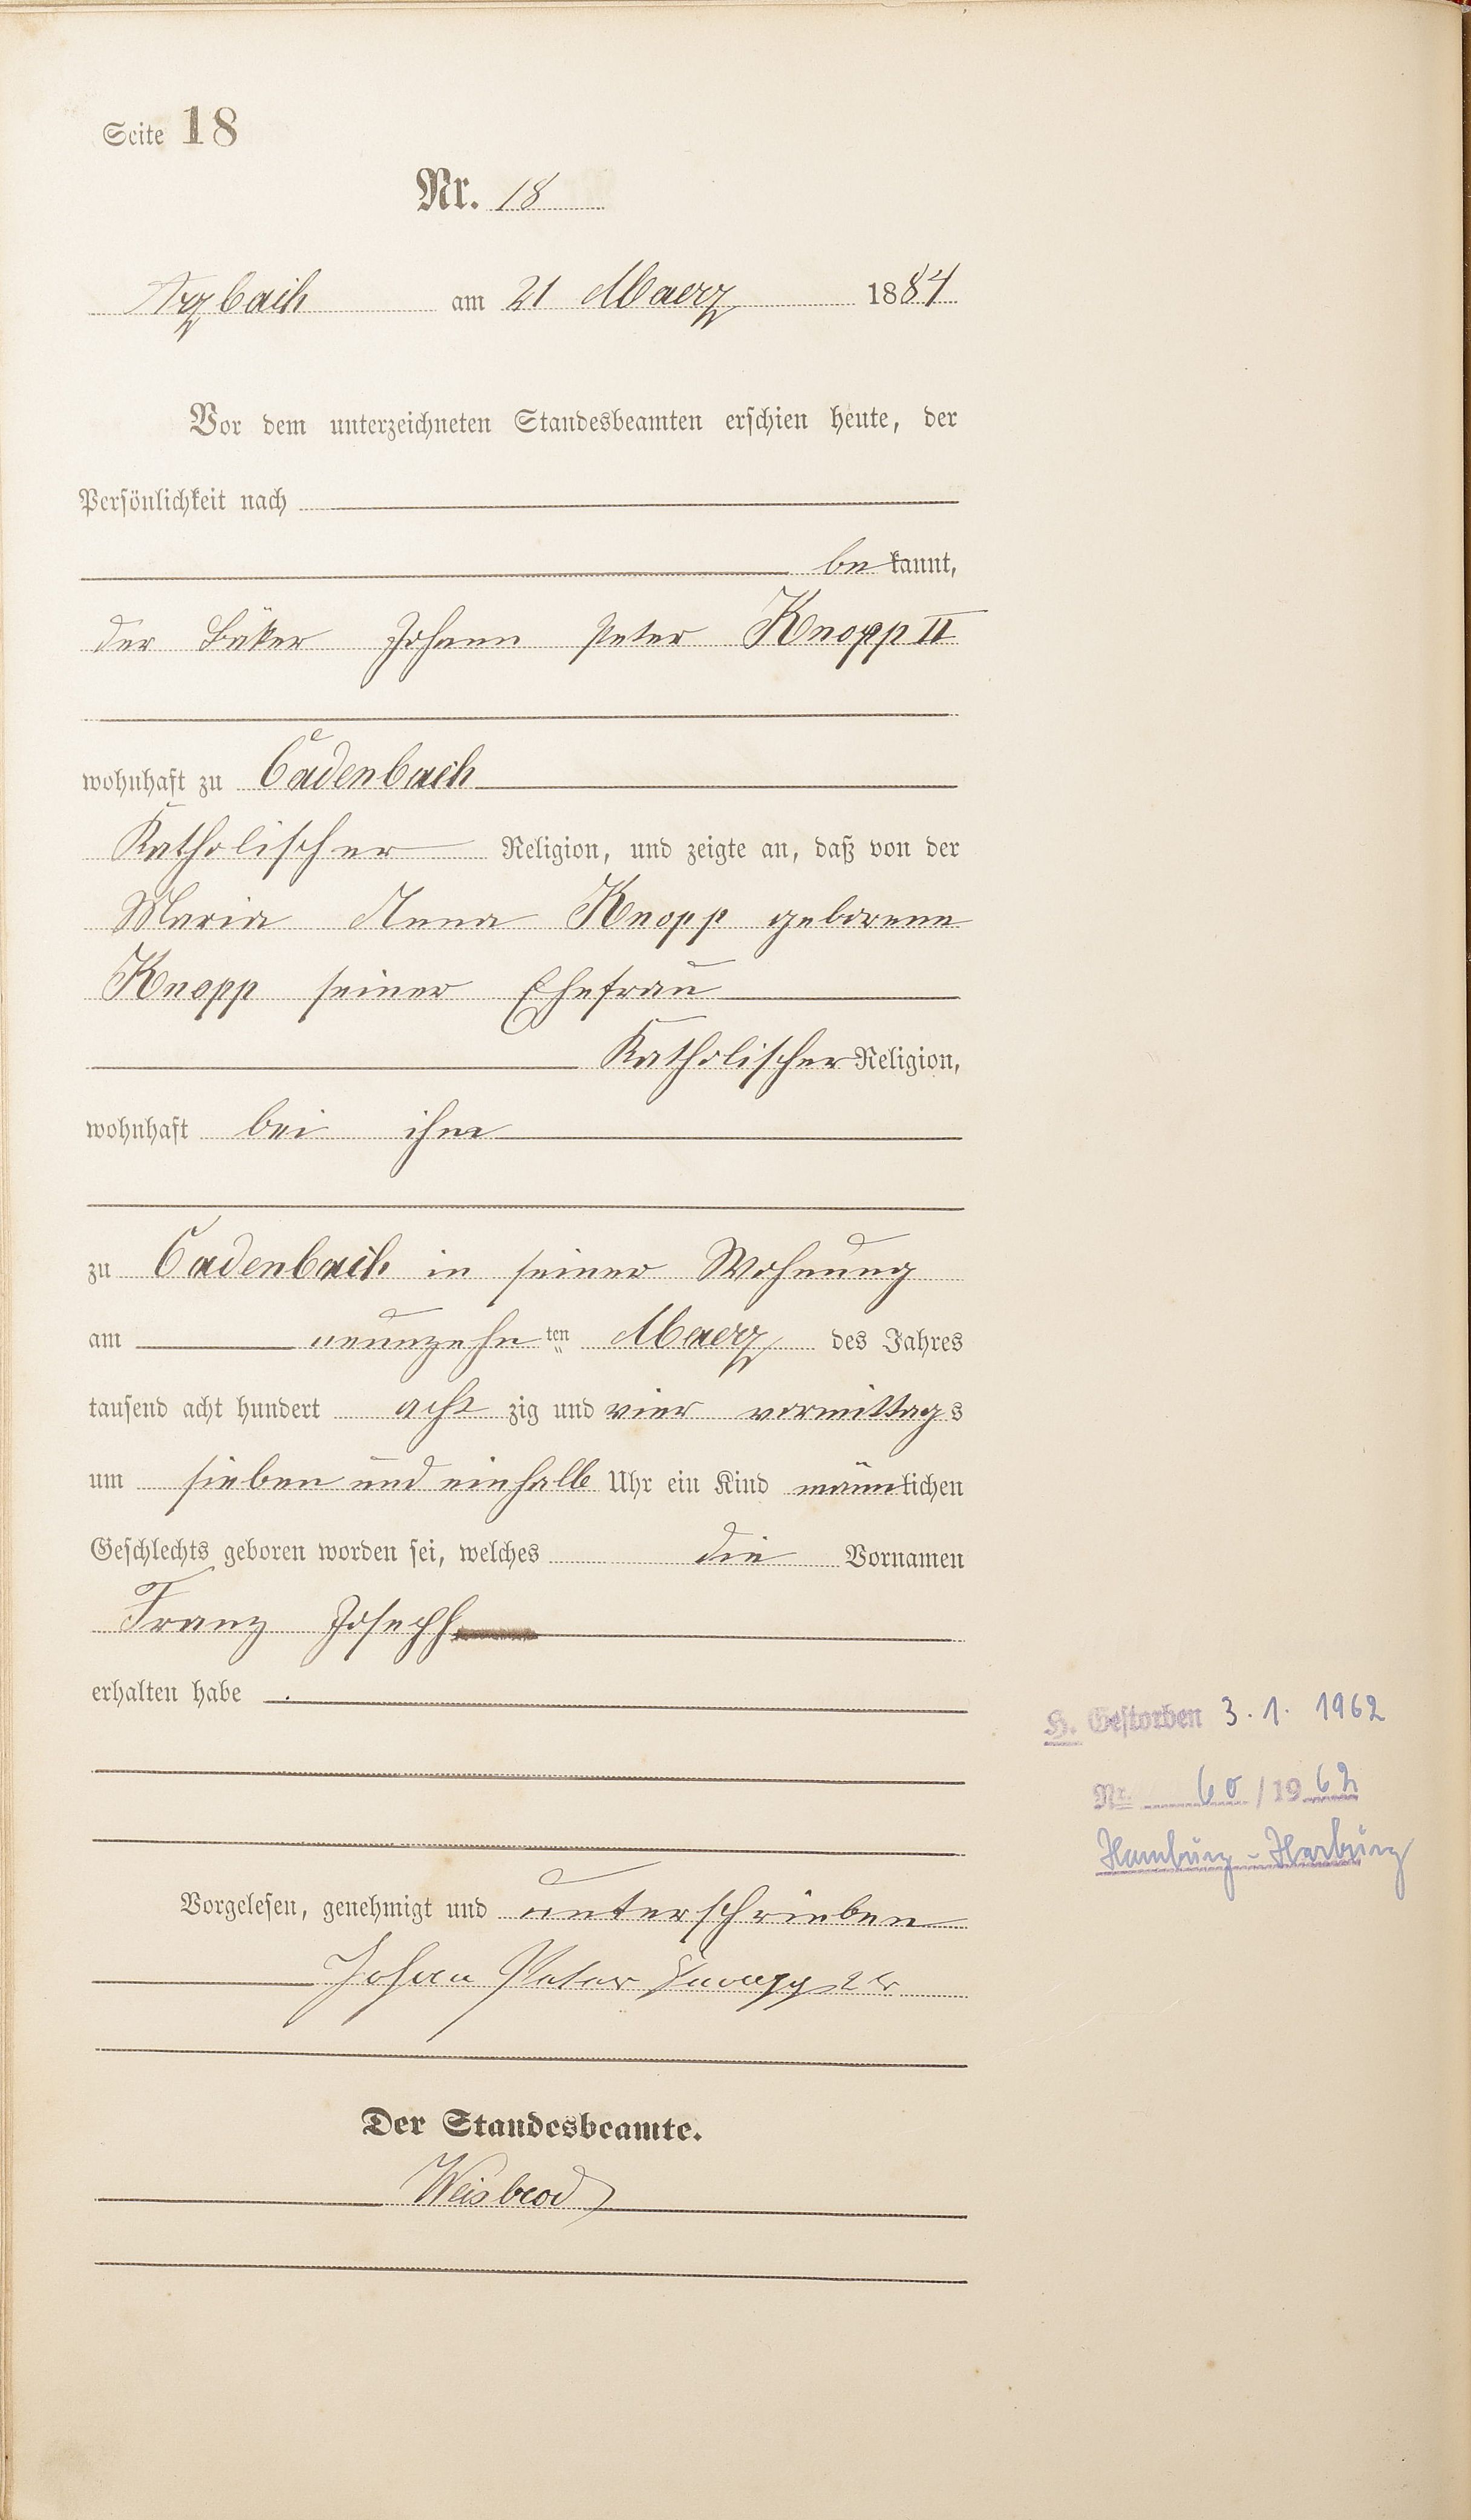 Seite 18
Nr. 18
Arzbach am 21 Maerz 1884
Vor dem unterzeichneten Standesbeamten erschien heute, der
Persönlichkeit nach
be kannt,
der Bäker Johann Peter Knopp II
wohnhaft zu Cadenbach
Katholischer Religion, und zeigte an, daß von der
Maria Anna Knopp geborene
Knopp seiner Ehefrau
Katholischer Religion,
wohnhaft bei ihm
zu Cadenbach in seiner Wohnung
am neunzehn ten Maerz des Jahres
tausend acht hundert acht zig und vier vormittags
um sieben und einhalb Uhr ein Kind männlichen
Geschlechts geboren worden sei, welches die Vornamen
Franz Joseph
erhalten habe .
H. Gestorben 3. 1. 1962
Nr. 60/1962
Hamburg-Harburg
Vorgelesen, genehmigt und unterschrieben
Johan Peter Knopp 2 tr
Der Standesbeamte.
Weisbrod